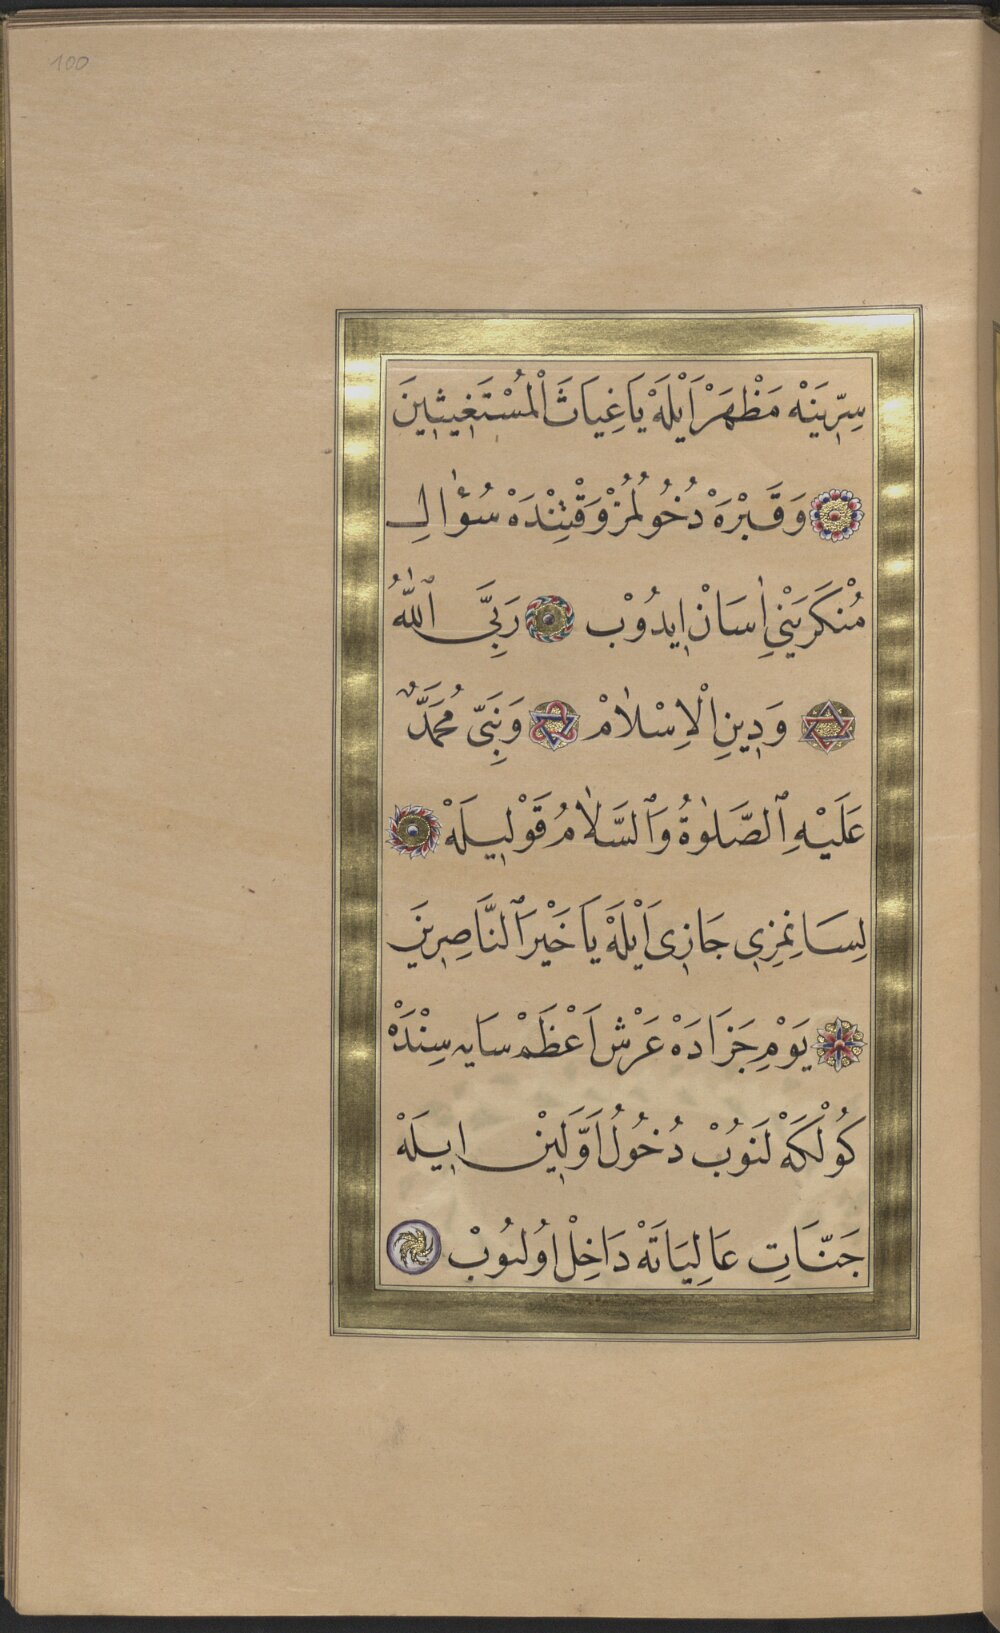 100
سِرِّينَهْ مَظْهَرْ اَيْلَهْ يَا غِيَاثَ الْمُسْتَغِيثِينَ
وَقَبْرَهْ دُخُولُمُزْ وَقْتِنْدَهْ سُؤٰالِ
مُنْكَرَيْنِي اٰسَانْ اِيدُوبْ رَبِّيَ ٱللّٰهُ
وَدِينِ الْاِسْلٰامْ وَنَبِيّ مُحَمَّدٌ
عَلَيْهِ ٱلصَّلٰوةُ وَٱلسَّلٰامُ قَوْلِيلَهْ
لِسَانِمِزِي جَازِي اَيْلَهْ يَا خَيْرَ ٱلنَّاصِرِينَ
يَوْمِ جَزَادَهْ عَرْشِ اَعْظَمْ سَايَه سِنْدَهْ
كُولْكَهْ لَنُوبْ دُخُولُ اَوَّلِينْ اِيلَهْ
جَنَّاتِ عَالِيَاتَهْ دَاخِلْ اوُلنوُبْ